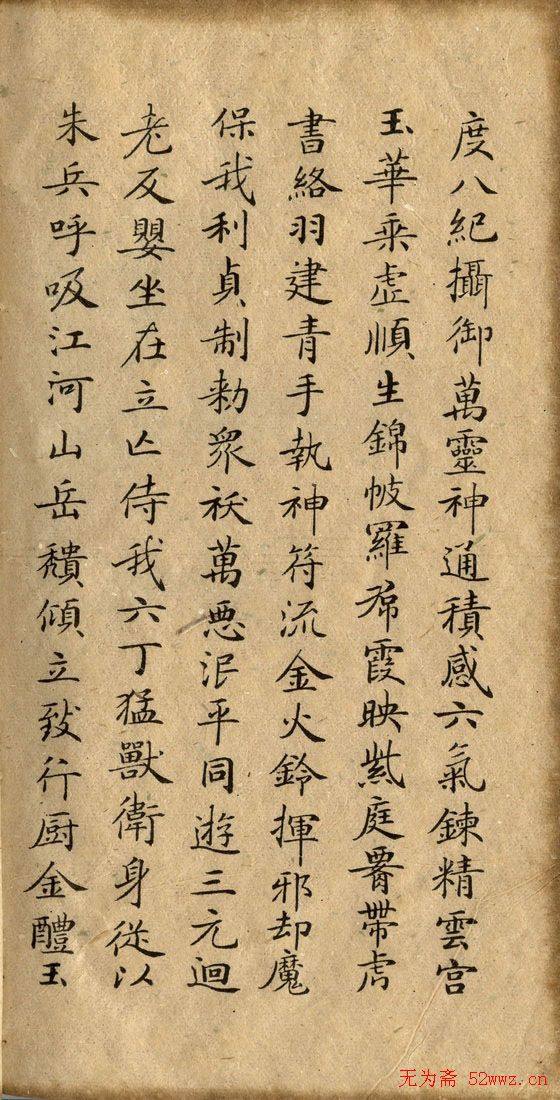 度八紀攝御萬靈神通積感六氣鍊精雲宮
玉華乘虛順生錦帔羅帬霞映紫庭腎帶虎
書絡羽建青手執神符流金火鈴揮邪却魔
保我利貞制勑眾祅萬惡泯平同遊三元迴
老反嬰坐在立亡侍我六丁猛獸衛身從以
朱兵呼吸江河山岳穨傾立致行厨金醴玉
无为斋 52wwz.cn